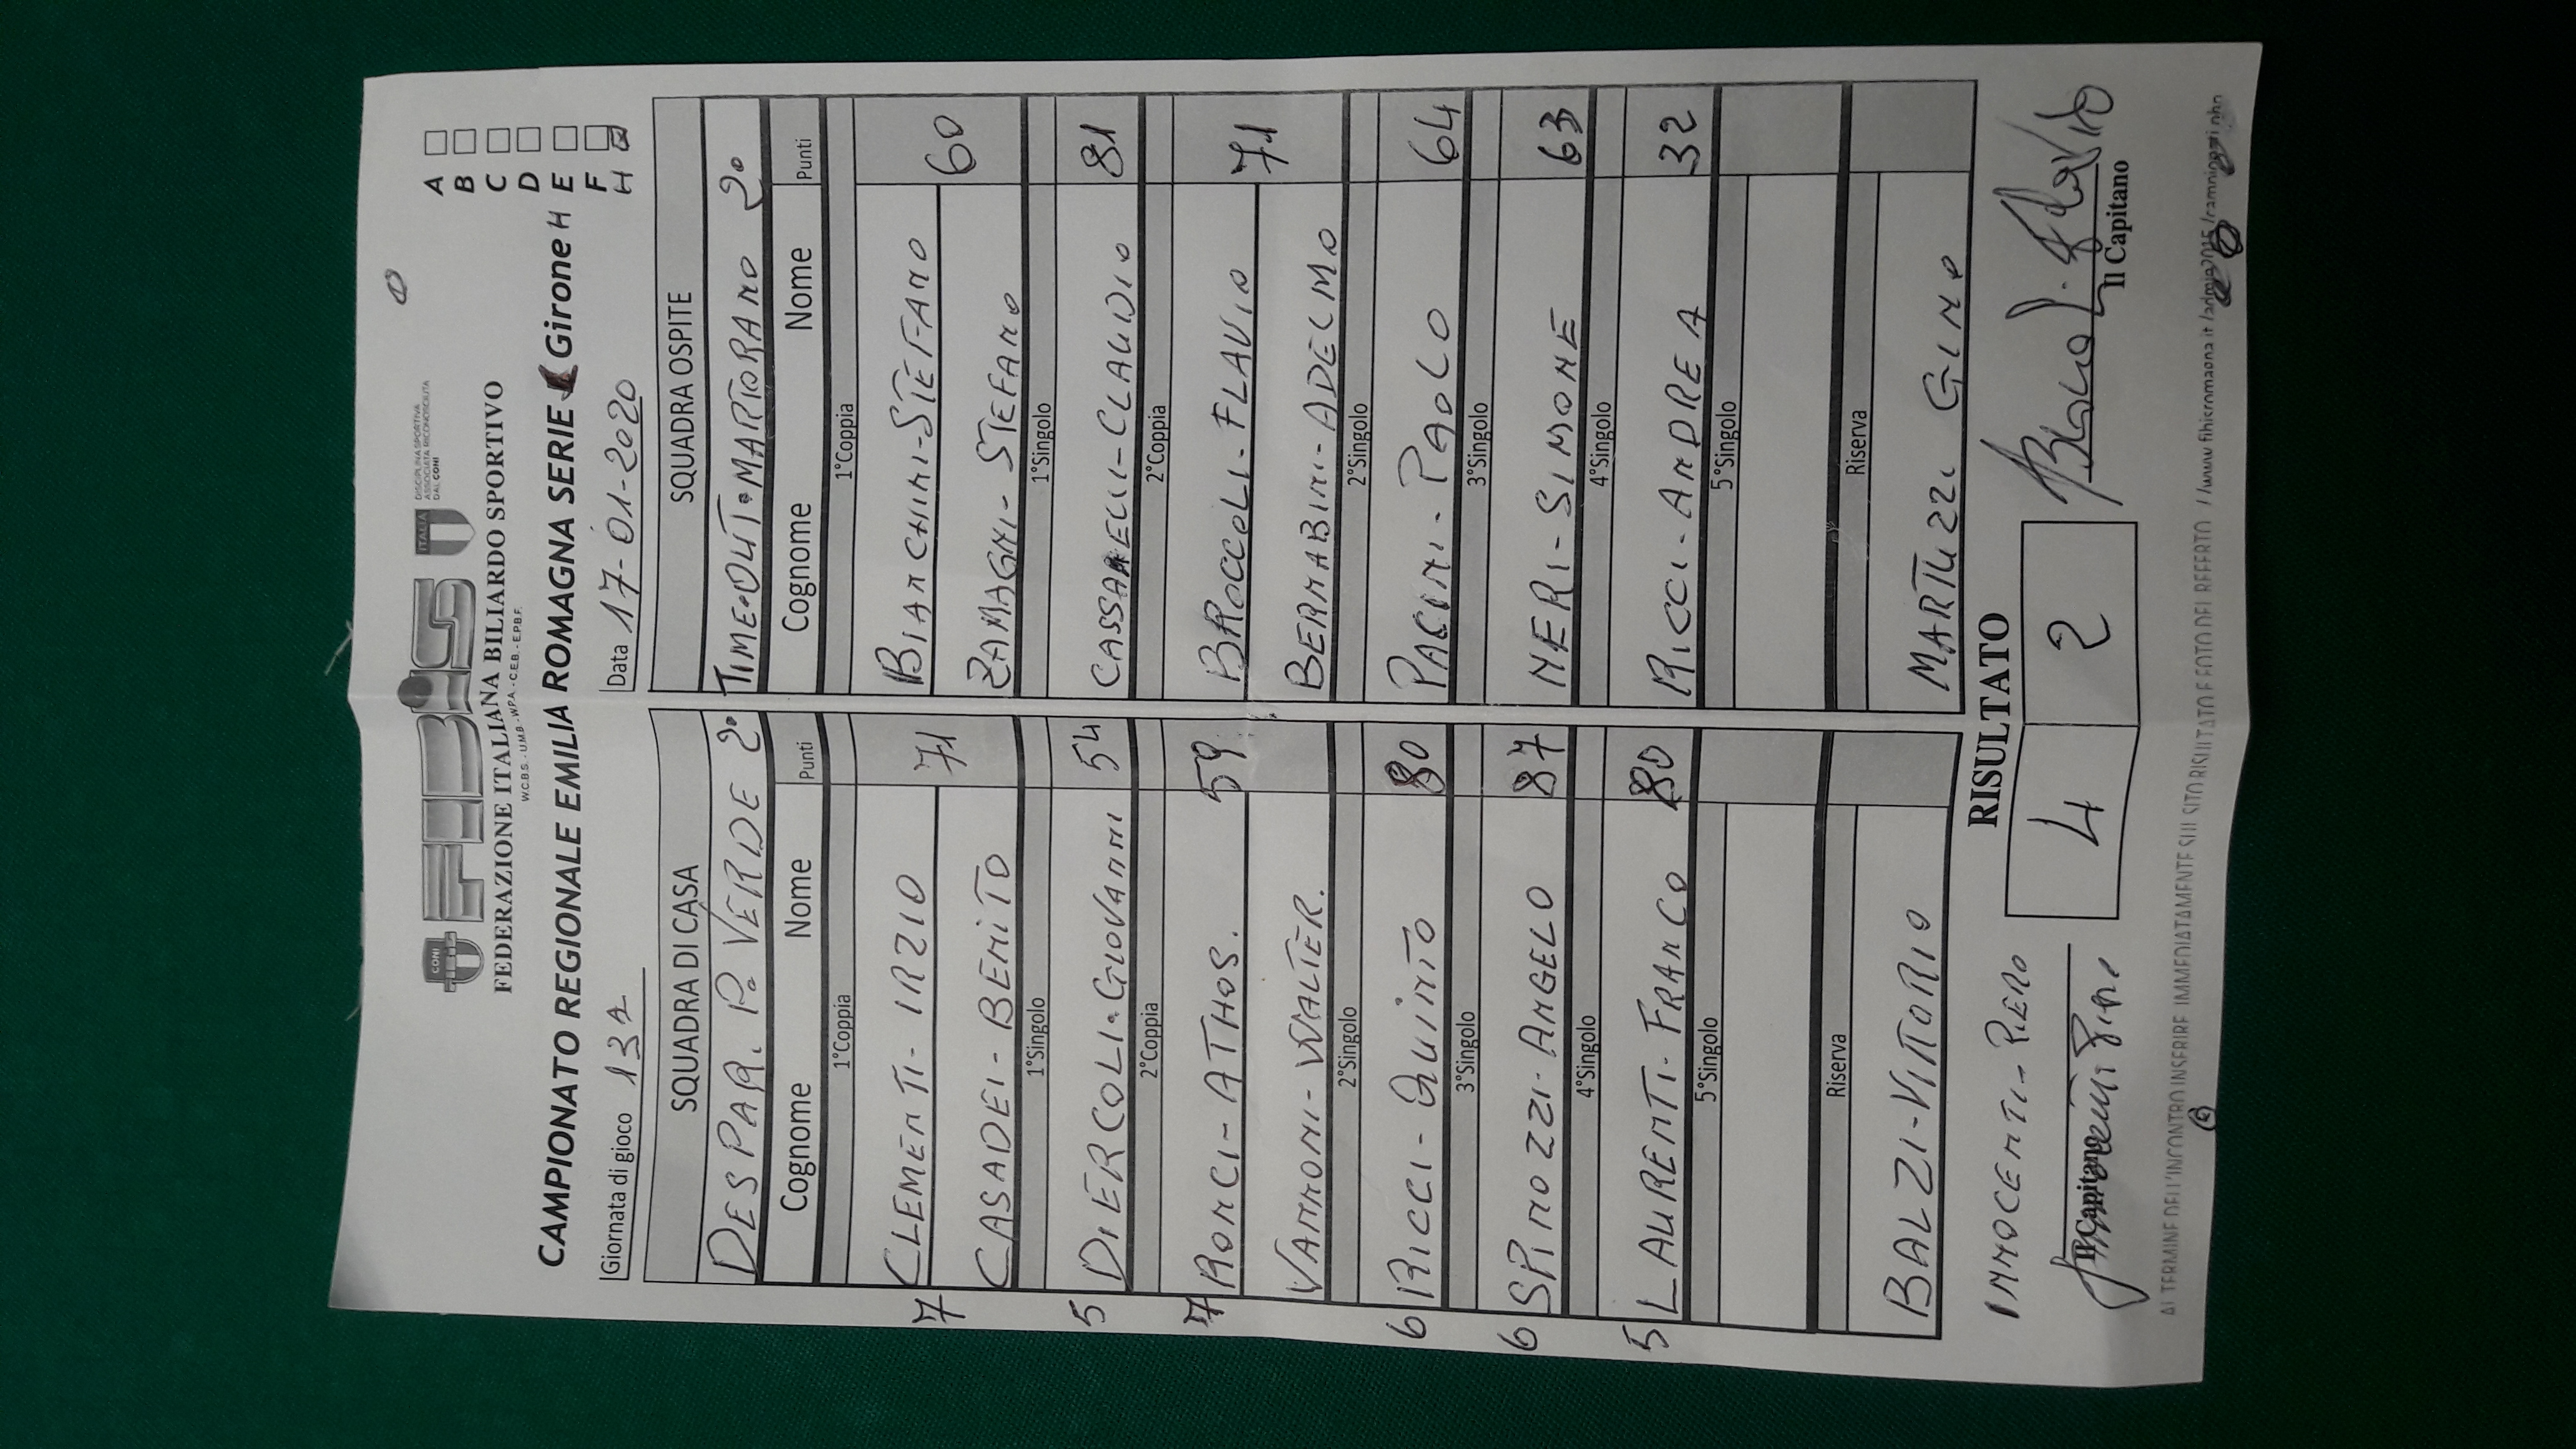 CONI
FIBiS
ITALIA
DISCIPLINA SPORTIVA
ASSOCIATA RICONOSCIUTA
DAL CONI
FEDERAZIONE ITALIANA BILIARDO SPORTIVO
W.C.B.S. - U.M.B. - W.P.A. - C.E.B. - E.P.B.F.
CAMPIONATO REGIONALE EMILIA ROMAGNA SERIE Girone H
A
B
C
D
E
F
H
Giornata di gioco 13ª
Data 17-01-2020
SQUADRA DI CASA
SQUADRA OSPITE
DESPAR. P. VERDE 2°
TIME.OUT.MARTORANO 2°
Cognome Nome Punti
Cognome Nome Punti
1°Coppia
1°Coppia
7 CLEMENTI-IRZIO 71
BIANCHINI-STEFANO 60
CASADEI-BENITO
ZAMAGNI-STEFANO
1°Singolo
1°Singolo
5 DIERCOLI.GIOVANNI 54
CLAUDIO 81
2°Coppia
2°Coppia
7 RONCI-ATHOS. 59
BROCCOLI-FLAVIO 71
VANNONI-WALTER.
BERNABINI-ADELMO
2°Singolo
2°Singolo
6 RICCI-QUINTO 80
PACINI-PAOLO 64
3°Singolo
3°Singolo
6 SPINOZZI-ANGELO 87
NERI-SIMONE 63
4°Singolo
4°Singolo
5 LAURENTI-FRANCO 80
RICCI-ANDREA 32
5°Singolo
5°Singolo
Riserva
Riserva
BALZI-VITTORIO
MARTUZZI GINO
INNOCENTI-PIERO
RISULTATO
4 2
Il Capitano
Il Capitano
AL TERMINE DELL'INCONTRO INSERIRE IMMEDIATAMENTE SUL SITO RISULTATO E FOTO DEL REFERTO